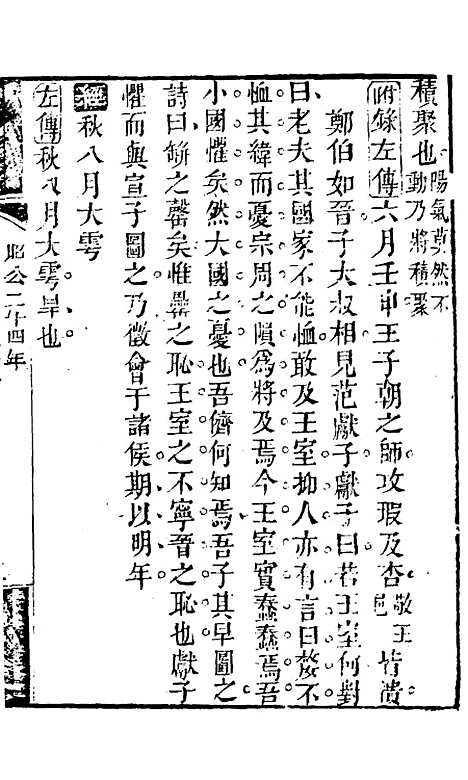 積聚也陽氣莫然不動乃將積聚
附錄左傳六月壬申王子朝之師攻瑕及杏敬王邑皆潰
鄭伯如晉子大叔相見范獻子獻子曰若王室何對
曰老夫其國家不能恤敢及王室抑人亦有言曰嫠不
恤其緯而憂宗周之隕爲將及焉今王室實蠢蠢焉吾
小國懼矣然大國之憂也吾儕何知焉吾子其早圖之
詩曰缾之罄矣惟罍之恥王室之不寧晉之恥也獻子
懼而與宣子圖之乃徵會于諸侯期以明年
經秋八月大雩
左傳秋八月大雩旱也
昭公二十四年